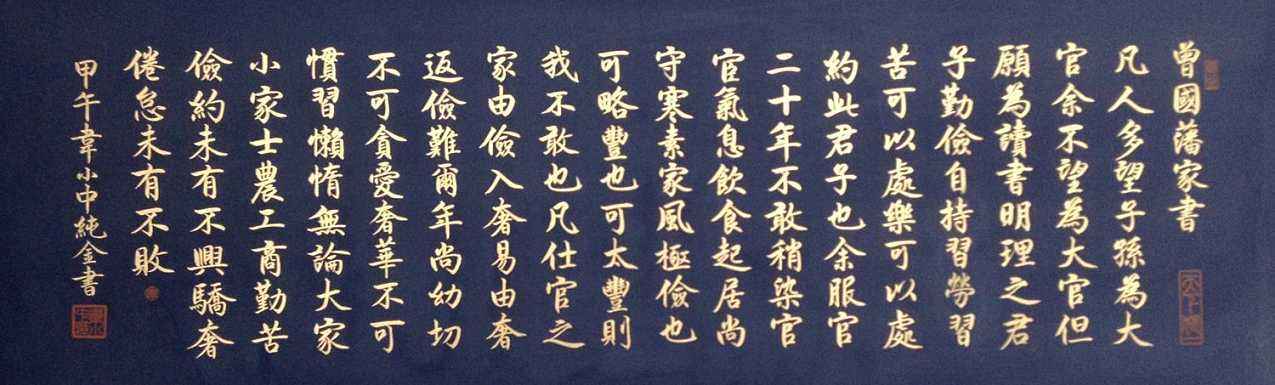 曾國藩家書
凡人多望子孫為大
官余不望為大官但
願為讀書明理之君
子勤儉自持習勞習
苦可以處樂可以處
約此君子也余服官
二十年不敢稍染官
宦氣息飲食起居尚
守寒素家風極儉也
可略豐也可太豐則
我不敢也凡仕官之
家由儉入奢易由奢
返儉難爾年尚幼切
不可貪愛奢華不可
慣習懶惰無論大家
小家士農工商勤苦
儉約未有不興驕奢
倦怠未有不敗
甲午韋小中純金書